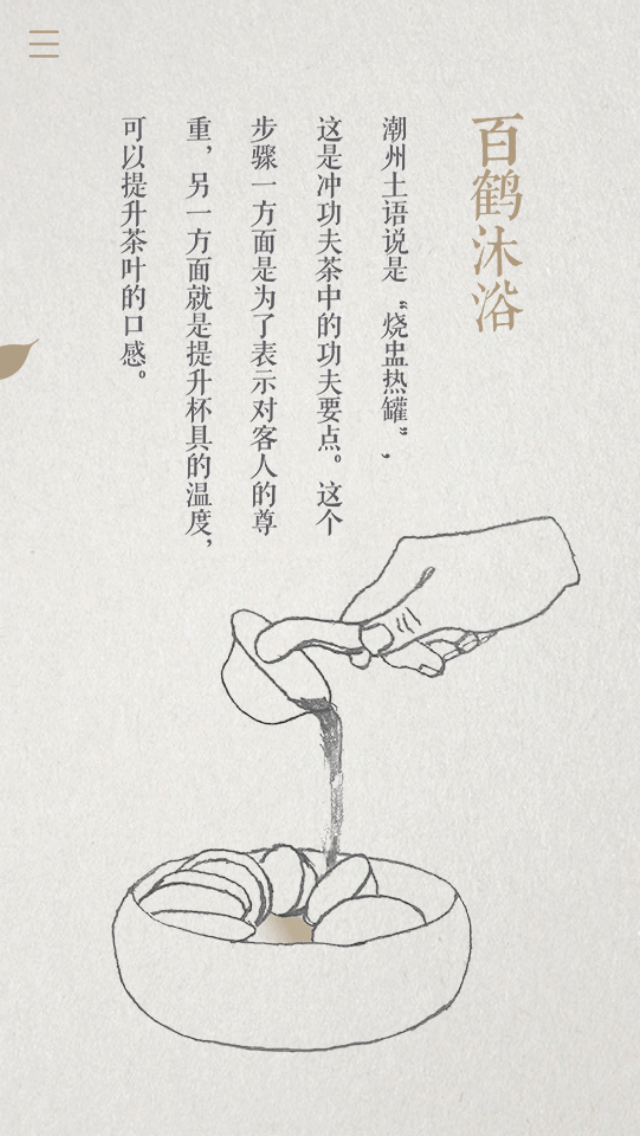 百鹤沐浴
潮州土语说是“烧盅热罐”，
这是冲功夫茶中的功夫要点。这个
步骤一方面是为了表示对客人的尊
重，另一方面就是提升杯具的温度，
可以提升茶叶的口感。